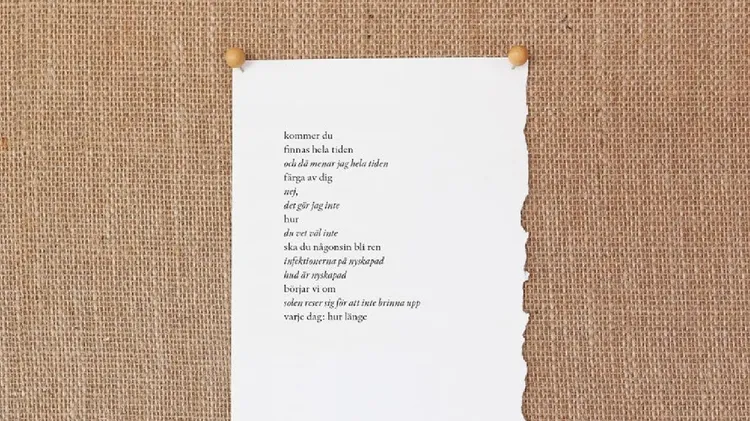 kommer du
finnas hela tiden
och då menar jag hela tiden
färga av dig
nej,
det gör jag inte
hur
du vet väl inte
ska du någonsin bli ren
infektionerna på nyskapad
hud är nyskapad
börjar vi om
solen reser sig för att inte brinna upp
varje dag: hur länge